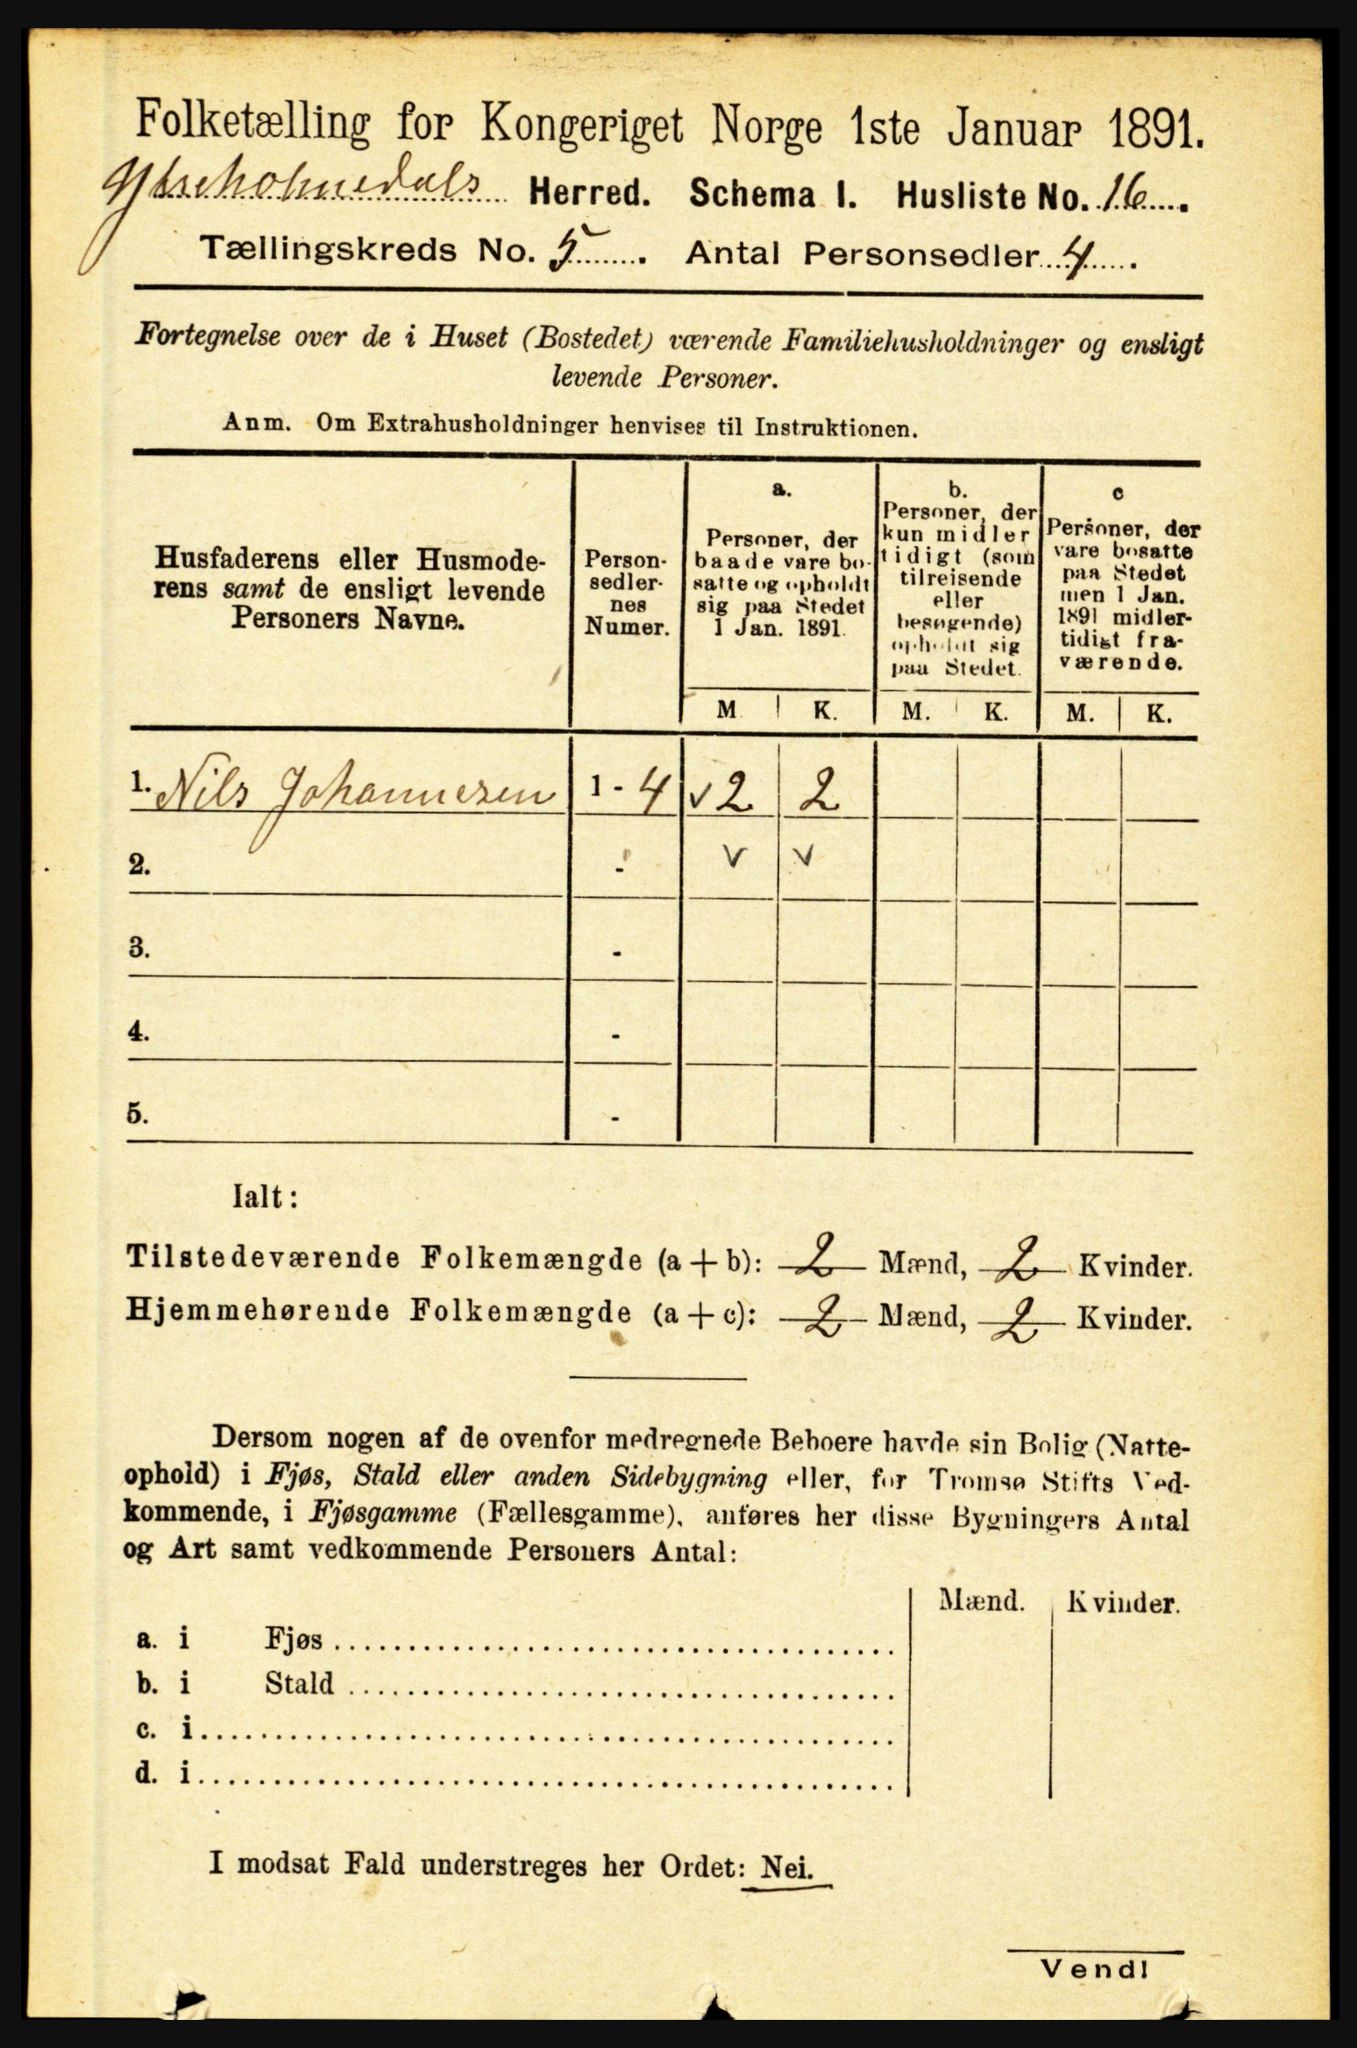 Folketælling for Kongeriget Norge 1ste Januar 1891.
Ytreholmedals Herred. Schema I. Husliste No. 16.
Tællingskreds No. 5. Antal Personsedler 4.
Fortegnelse over de i Huset (Bostedet) værende Familiehusholdninger og ensligt
levende Personer.
Anm. Om Extrahusholdninger henvises til Instruktionen.
Husfaderens eller Husmode-
rens samt de ensligt levende
Personers Navne.
Person-
sedler-
nes
Numer.
a.
Personer, der
baade vare bo-
satte og opholdt
sig paa Stedet
1 Jan. 1891.
b.
Personer, der
kun midler
tidigt (som
tilreisende
eller
besøgende)
opholdt sig
paa Stedet.
c
Personer, der
vare bosatte
paa Stedet
men 1 Jan.
1891 midler-
tidigt fra-
værende.
M K. M. K. M. K.
1. Nils Johannesen 1 - 4 v 2 2
2. - v v
3. -
4. -
5. -
Ialt:
Tilstedeværende Folkemængde (a + b): 2 Mænd, 2 Kvinder.
Hjemmehørende Folkemængde (a + c): 2 Mænd, 2 Kvinder.
Dersom nogen af de ovenfor medregnede Beboere havde sin Bolig (Natte-
ophold) i Fjøs, Stald eller anden Sidebygning eller, for Tromsø Stifts Ved-
kommende, i Fjøsgamme (Fællesgamme), anføres her disse Bygningers Antal
og Art samt vedkommende Personers Antal:
Mænd. Kvinder.
a. i Fjøs
b. i Stald
c. i
d. i
I modsat Fald understreges her Ordet: Nei.
Vend!